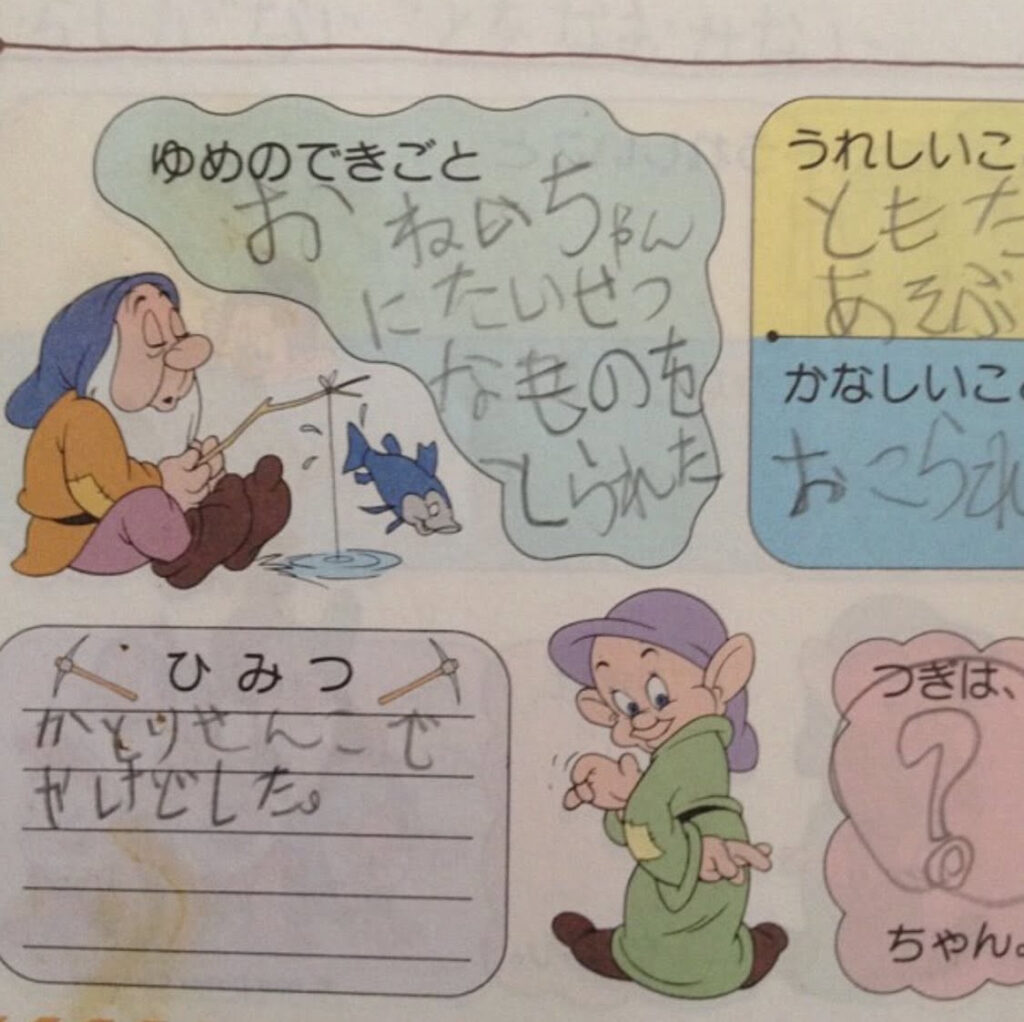 ゆめのできごと
おねいちゃん
にたいせつ
なものを
としられた
うれしいこ
ともた
あそぶ
かなしいこ
おこられ
ひみつ
かとりせんこで
やけどした。
つぎは、
?
ちゃん。